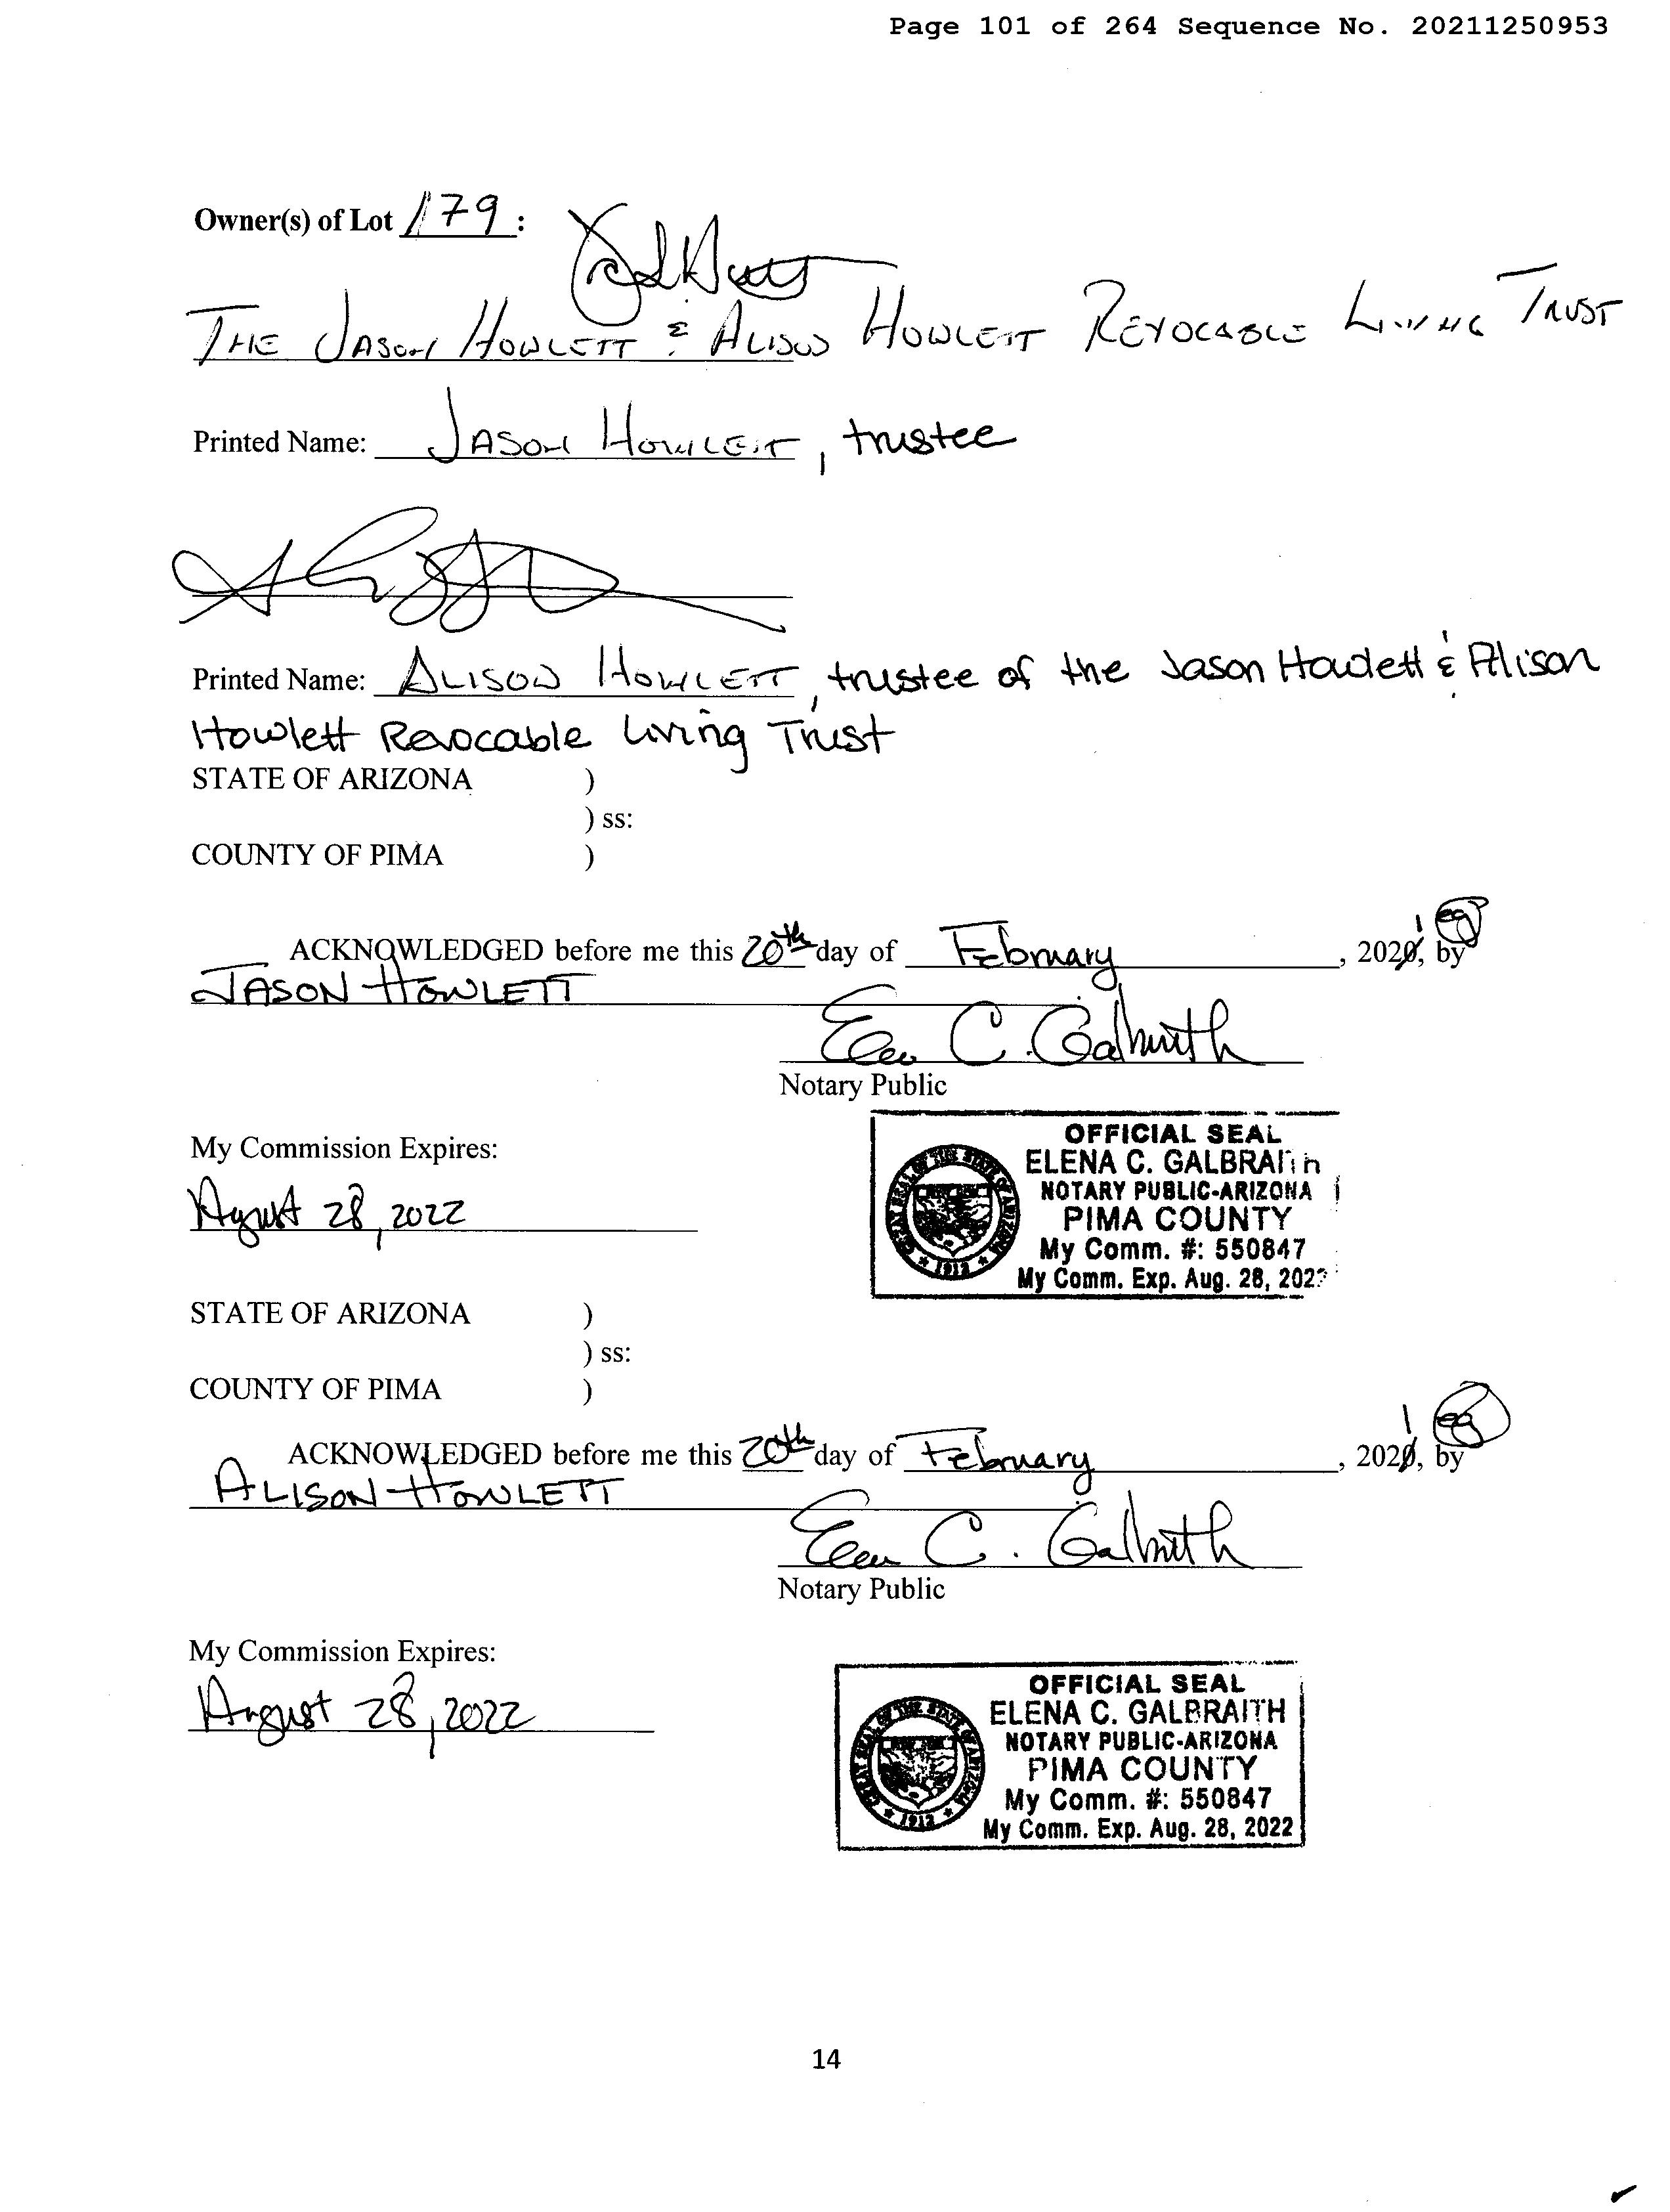 Page 101 of 264 Sequence No. 20211250953
Owner(s) of Lot 179 :
THE JASON HOWLETT & ALISON HOWLETT REVOCABLE LIVING TRUST
Printed Name: JASON HOWLETT, trustee
Printed Name: ALISON HOWLETT, trustee of the Jason Howlett & Alison
Howlett Revocable Living Trust
STATE OF ARIZONA )
) ss:
COUNTY OF PIMA )
ACKNOWLEDGED before me this 20th day of February, 2021, by eg
JASON HOWLETT
Elena C. Galbraith
Notary Public
My Commission Expires:
August 28, 2022
OFFICIAL SEAL
ELENA C. GALBRAITH
NOTARY PUBLIC-ARIZONA
PIMA COUNTY
My Comm. #: 550847
My Comm. Exp. Aug. 28, 2022
GREAT SEAL OF THE STATE OF ARIZONA
1912
STATE OF ARIZONA )
) ss:
COUNTY OF PIMA )
ACKNOWLEDGED before me this 20th day of February, 2021, by eg
ALISON HOWLETT
Elena C. Galbraith
Notary Public
My Commission Expires:
August 28, 2022
OFFICIAL SEAL
ELENA C. GALBRAITH
NOTARY PUBLIC-ARIZONA
PIMA COUNTY
My Comm. #: 550847
My Comm. Exp. Aug. 28, 2022
GREAT SEAL OF THE STATE OF ARIZONA
1912
14